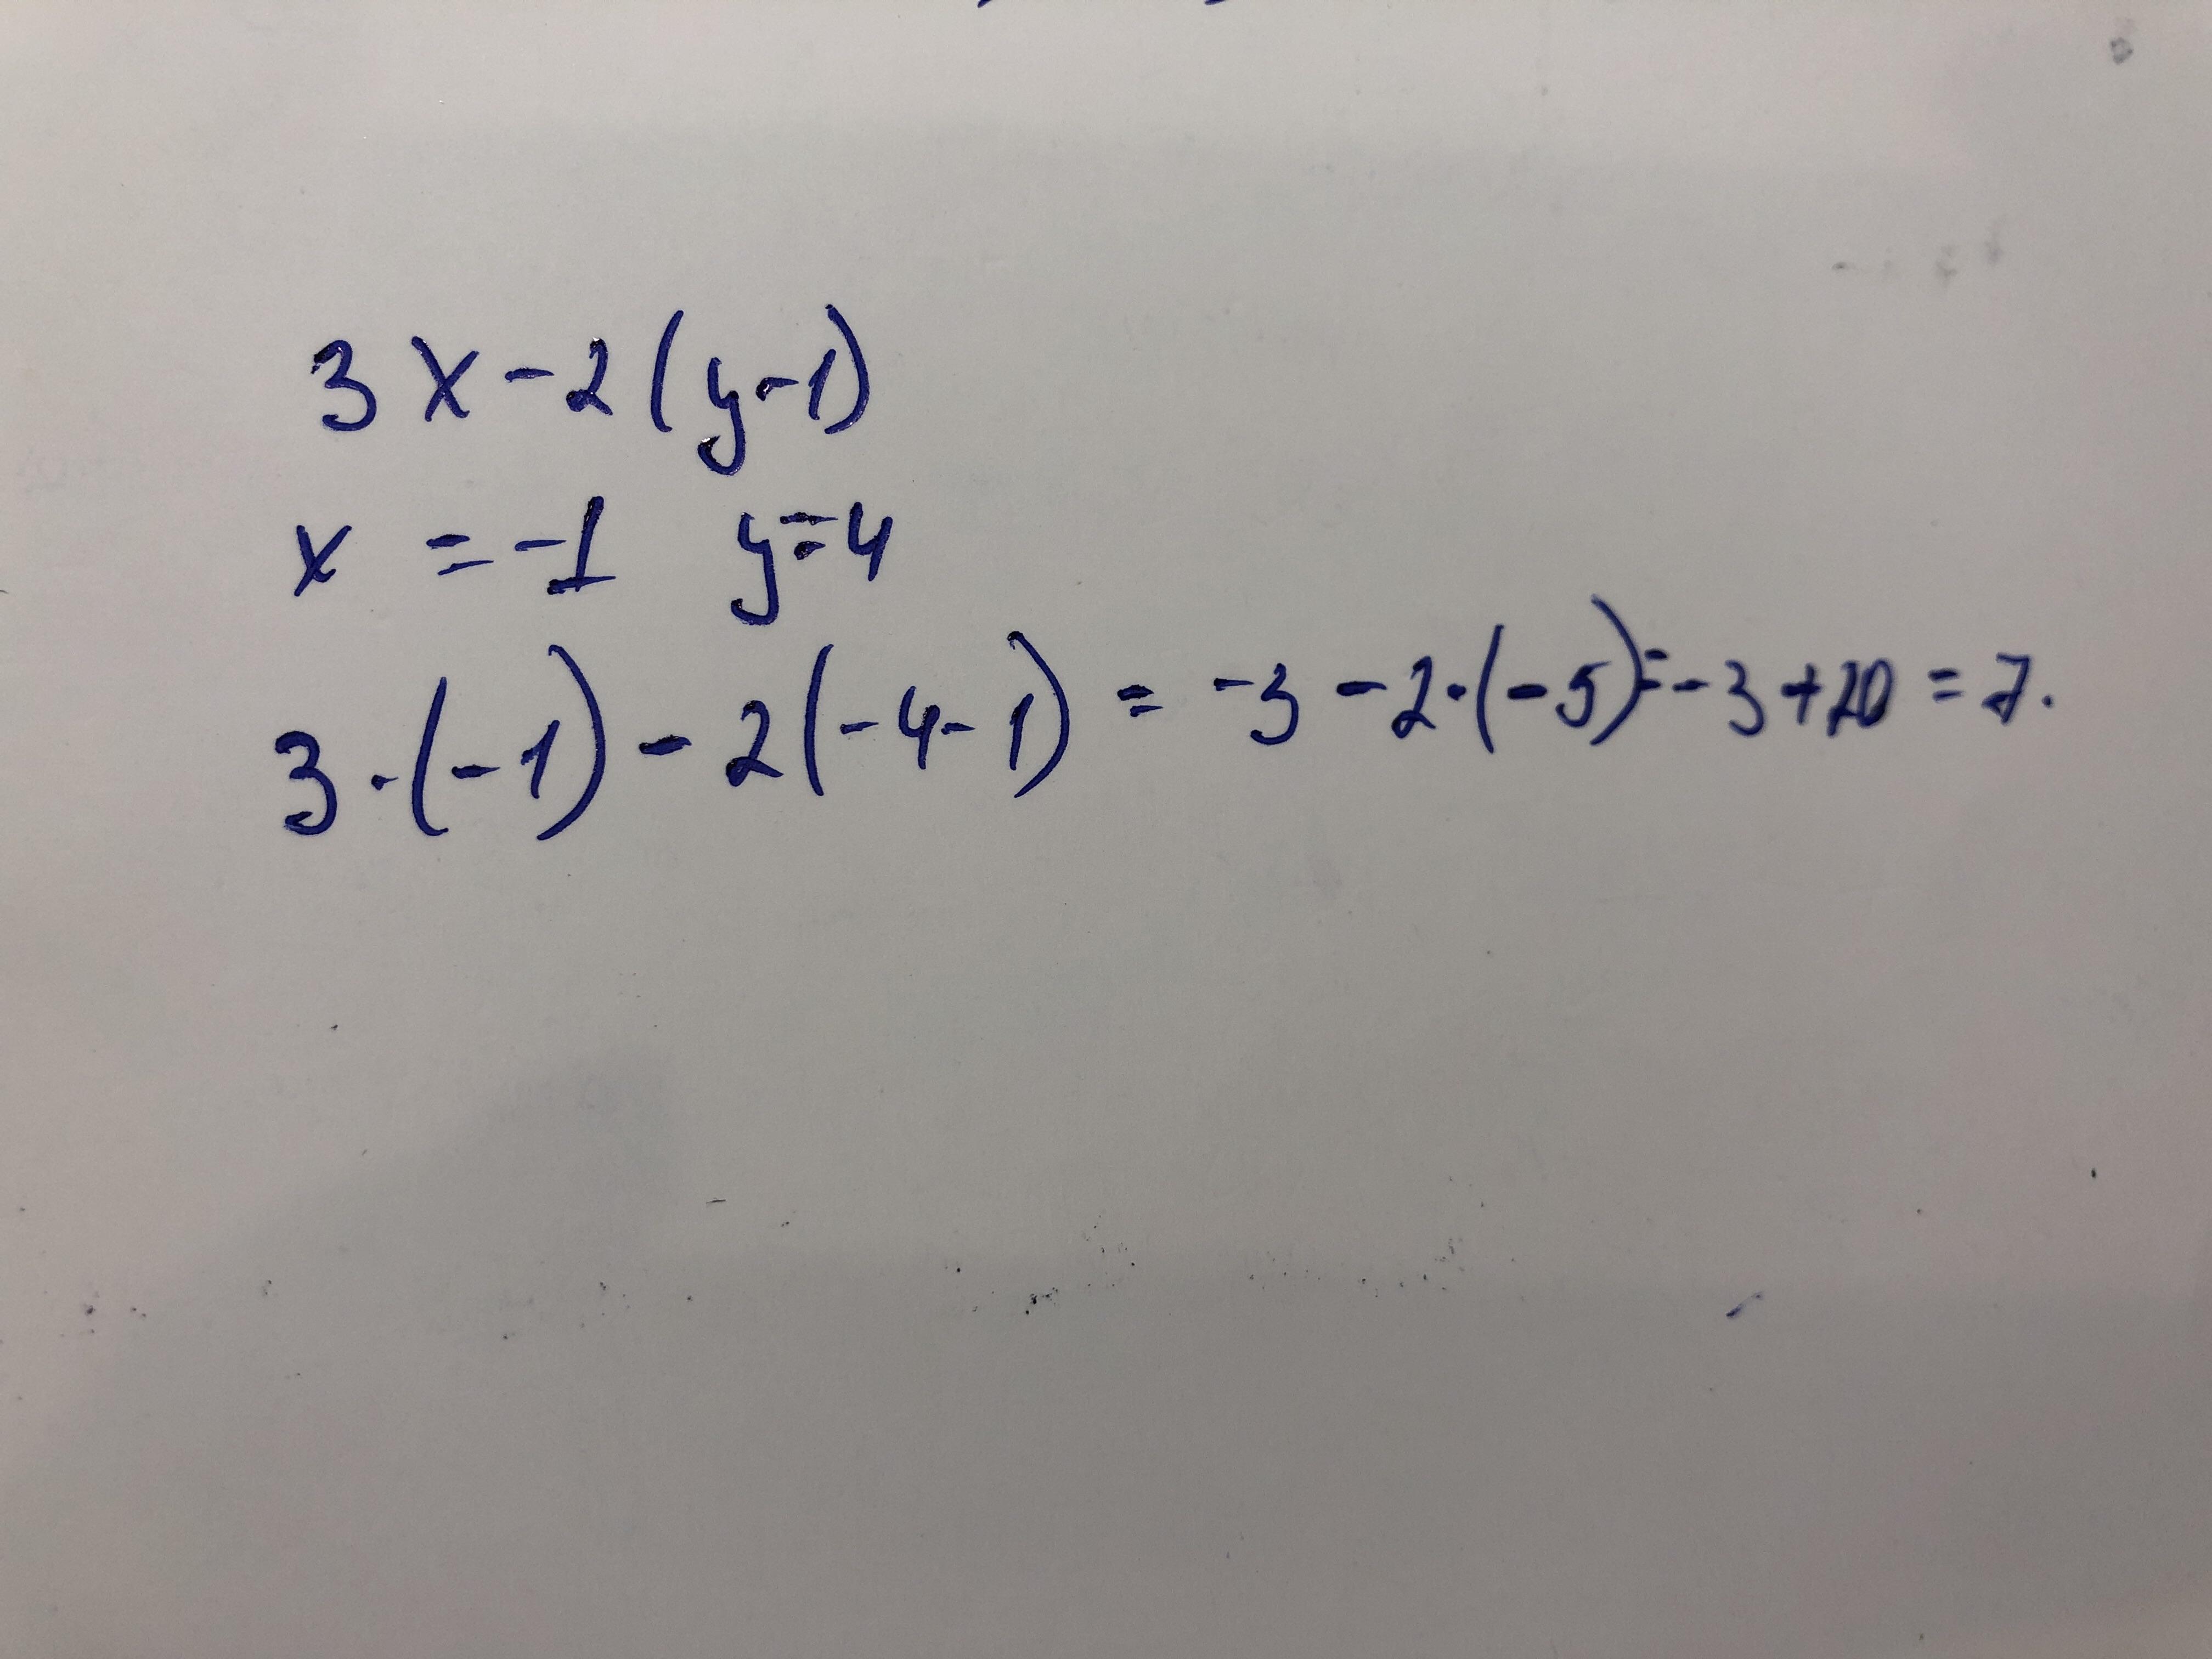 3x-2(y-1)
x = -1 y=4
3·(-1) - 2(-4-1) = -3 - 2·(-5) = -3 + 10 = 7.